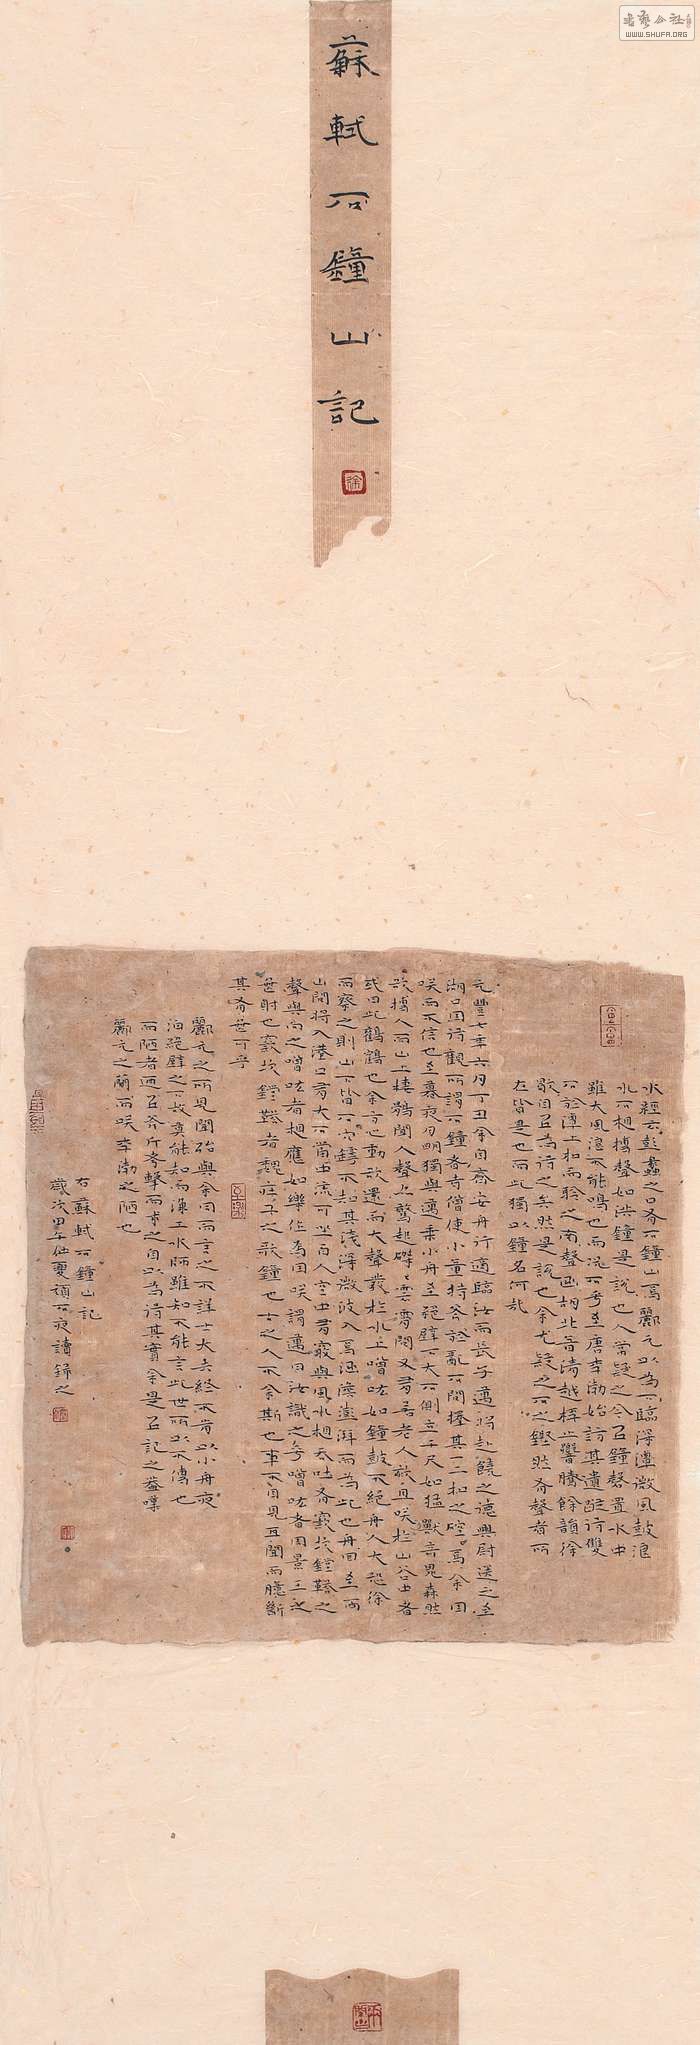 蘇軾石鐘山記
水經云彭蠡之口有石鐘山焉酈元以為下臨深潭微風鼓浪
水石相搏聲如洪鐘是說也人常疑之今以鐘磬置水中
雖大風浪不能鳴也而況石乎至唐李渤始訪其遺蹤得雙
石於潭上扣而聆之南聲函胡北音清越桴止響騰餘韻徐
歇自以為得之矣然是說也余尤疑之石之鏗然有聲者所
在皆是也而此獨以鐘名何哉
元豐七年六月丁丑余自齊安舟行適臨汝而長子邁將赴饒之德興尉送之至
湖口因得觀所謂石鐘者寺僧使小童持斧於亂石間擇其一二扣之硿焉余固
笑而不信也至暮夜月明獨與邁乘小舟至絕壁下大石側立千尺如猛獸奇鬼森然
欲搏人而山上棲鶻聞人聲亦驚起磔磔雲霄間又有若老人欬且笑於山谷中者
或曰此鸛鶴也余方心動欲還而大聲發於水上噌吰如鐘鼓不絕舟人大恐徐
而察之則山下皆石穴罅不知其淺深微波入焉涵澹澎湃而為此也舟回至兩
山間將入港口有大石當中流可坐百人空中有竅與風水相吞吐有窾坎鏜鞳之
聲與向之噌吰者相應如樂作焉因笑謂邁曰汝識之乎噌吰者周景王之
無射也窾坎鏜鞳者魏莊子之歌鐘也古之人不余欺也事不目見耳聞而臆斷
其有無可乎
酈元之所見聞殆與余同而言之不詳士大夫終不肯以小舟夜
泊絕壁之下故莫能知而漁工水師雖知不能言此世所以不傳也
而陋者乃以斧斤考擊而求之自以為得其實余是以記之蓋嘆
酈元之簡而笑李渤之陋也
右蘇軾石鐘山記
歲次甲午仲夏頑石夜讀錄之
WWW.SHUFA.ORG